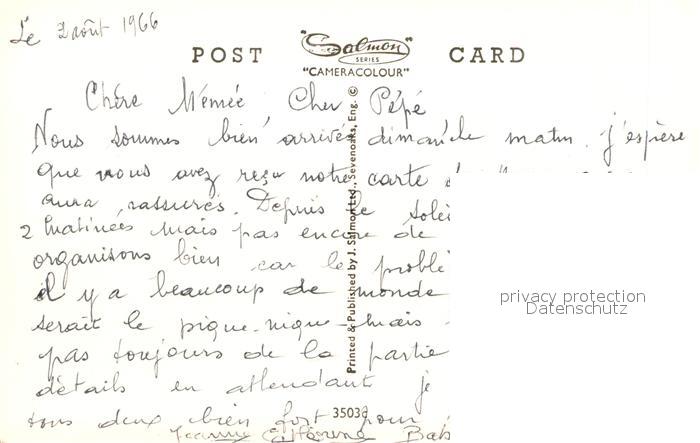 Le 2 août 1966
POST CARD
"Salmon SERIES
"CAMERACOLOUR"
Chère Mémée Cher Pépé
Nous sommes bien arrivés dimanche matin. j'espère
que vous avez reçu notre carte
aura rassurés. Depuis le soleil
2 Matinées mais pas encore de
organisons bien car le problè
il y a beaucoup de monde
serait le pique-nique - mais
pas toujours de la partie
détails en attendant je
tous deux bien fort pour
Printed & Published by J. Salmon Ltd., Sevenoaks, Eng. ©
3503
privacy protection
Datenschutz